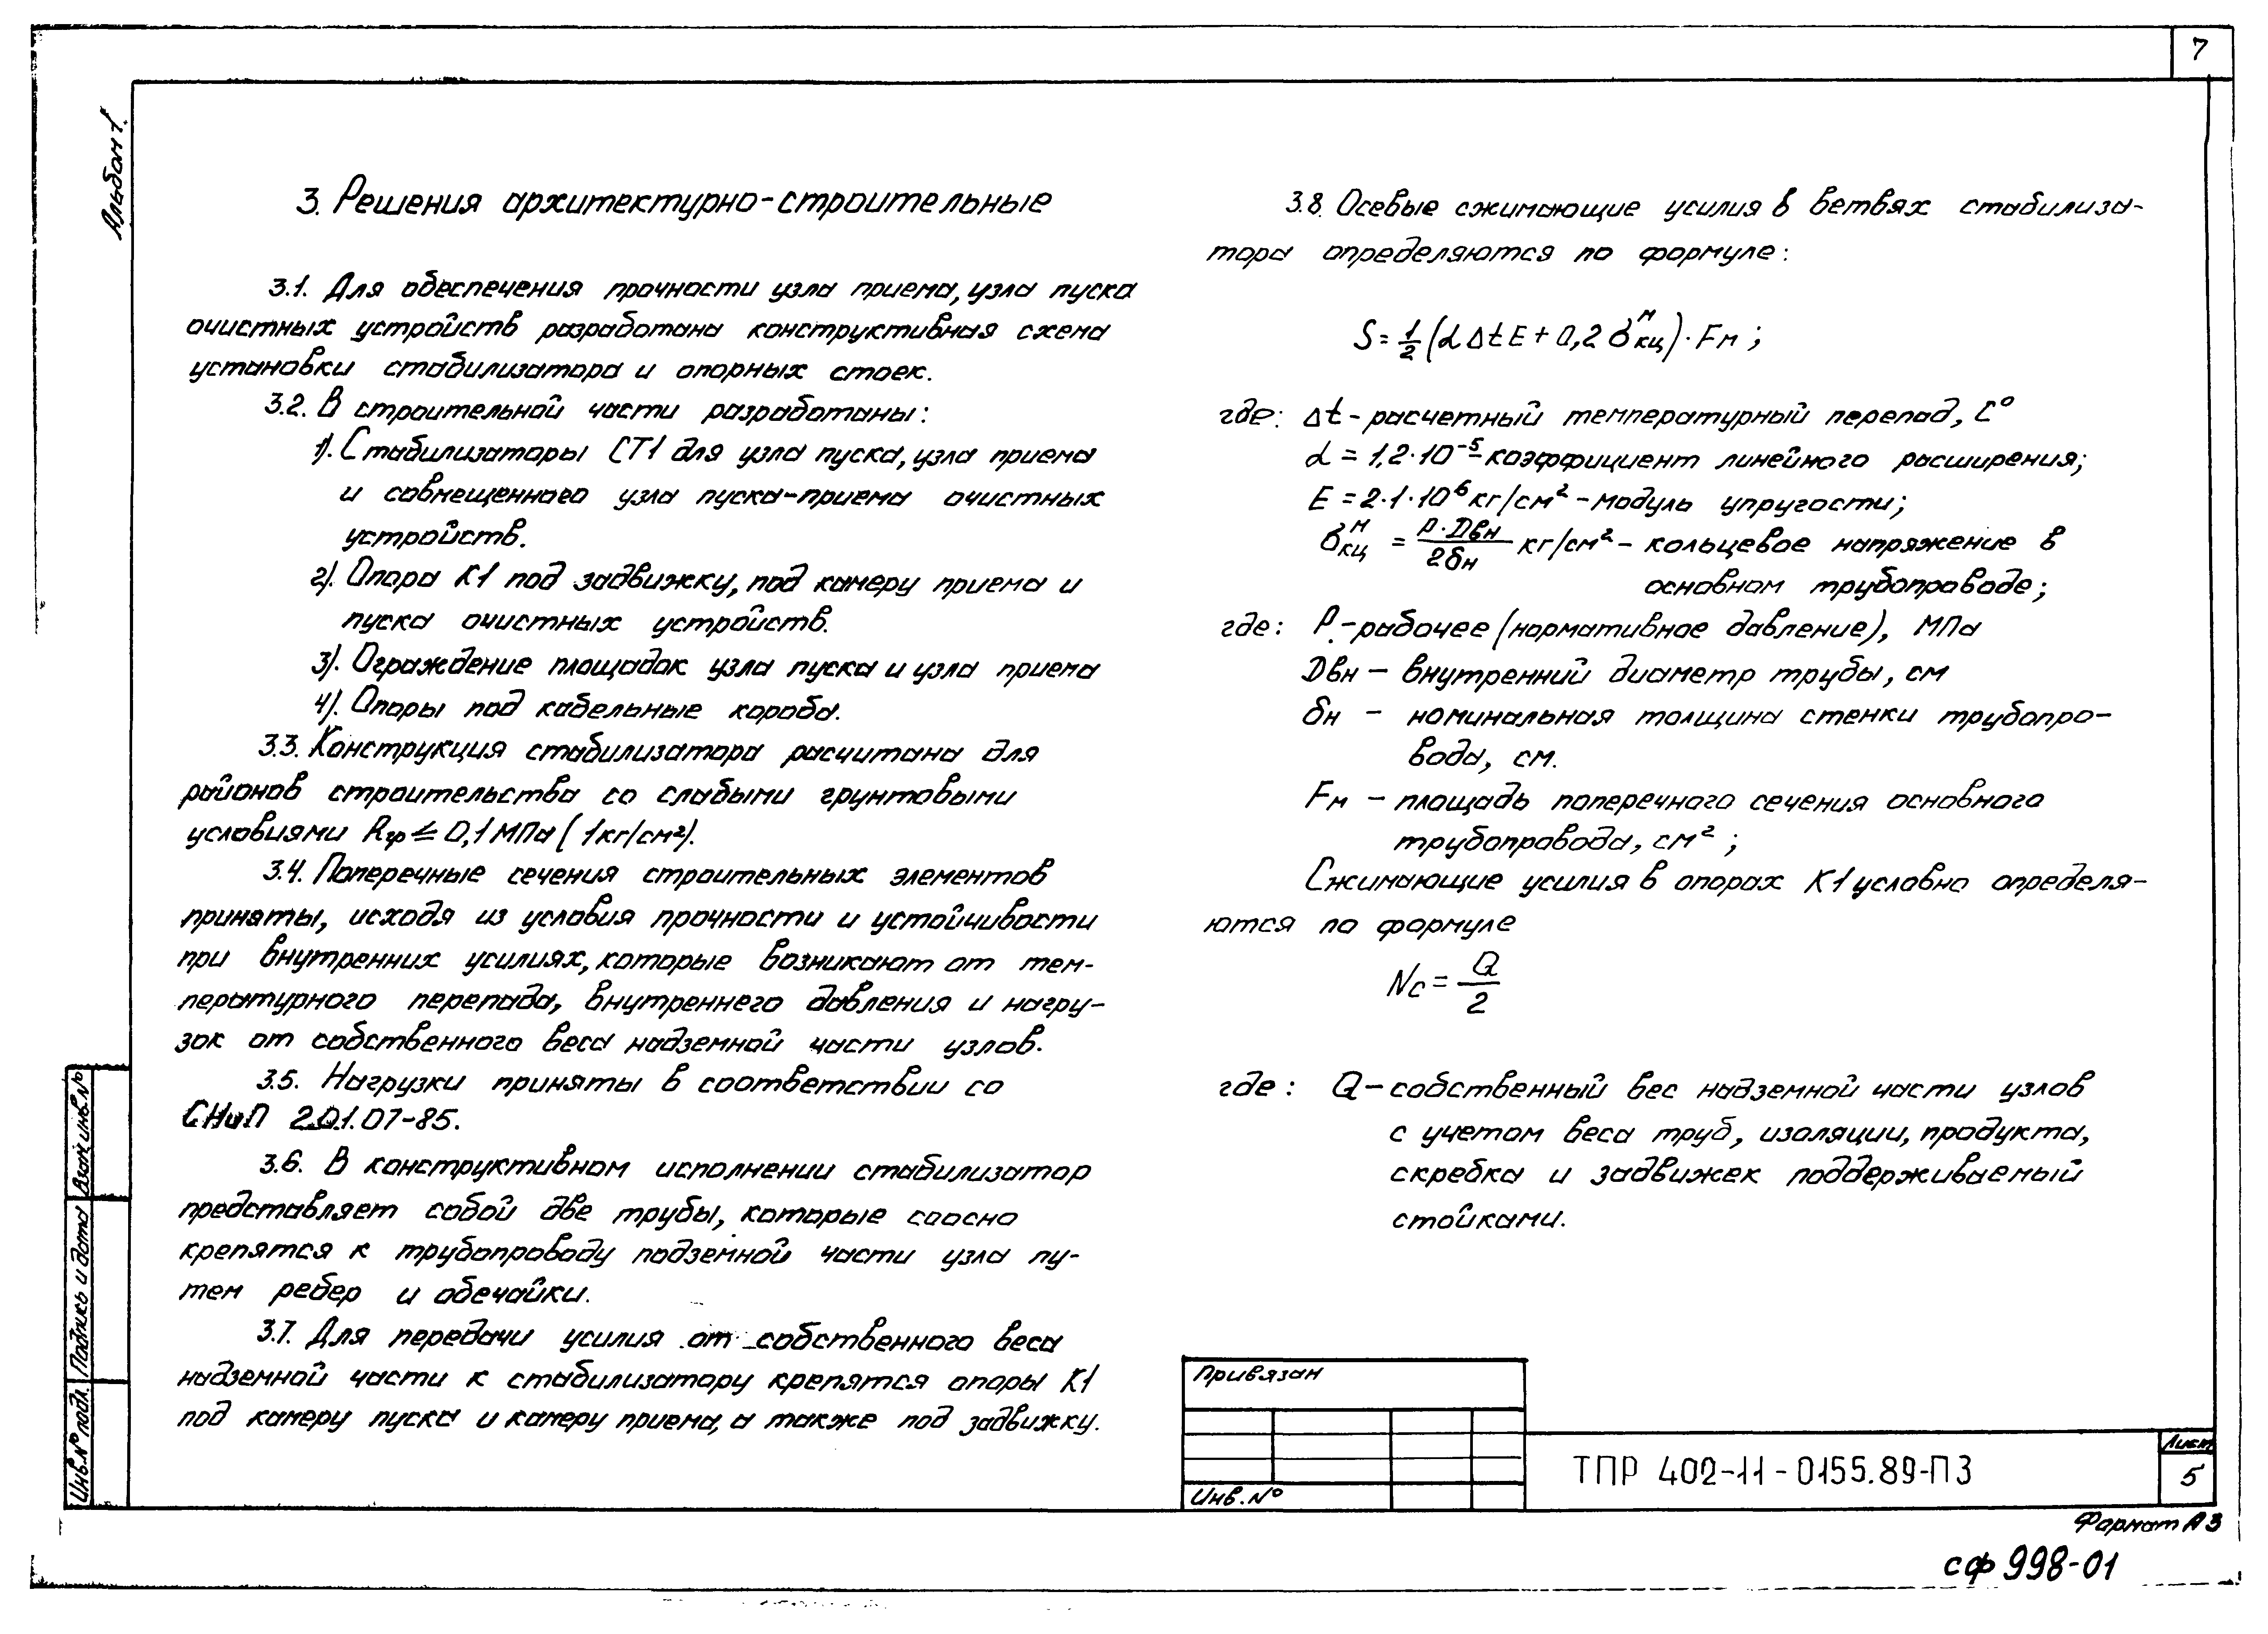 7
Альбом 1.
3. Решения архитектурно-строительные
3.1. Для обеспечения прочности узла приема, узла пуска
очистных устройств разработана конструктивная схема
установки стабилизатора и опорных стоек.
3.2. В строительной части разработаны:
1). Стабилизаторы СТ1 для узла пуска, узла приема
и совмещенного узла пуска-приема очистных
устройств.
2). Опора К1 под задвижку, под камеру приема и
пуска очистных устройств.
3). Ограждение площадок узла пуска и узла приема
4). Опоры под кабельные короба.
3.3. Конструкция стабилизатора расчитана для
районов строительства со слабыми грунтовыми
условиями Rгр ≤ 0,1 МПа (1кг/см²).
3.4. Поперечные сечения строительных элементов
приняты, исходя из условия прочности и устойчивости
при внутренних усилиях, которые возникают от тем-
пературного перепада, внутреннего давления и нагру-
зок от собственного веса надземной части узлов.
3.5. Нагрузки приняты в соответствии со
СНиП 2.01.07-85.
3.6. В конструктивном исполнении стабилизатор
представляет собой две трубы, которые соосно
крепятся к трубопроводу подземной части узла пу-
тем ребер и обечайки.
3.7. Для передачи усилия от собственного веса
надземной части к стабилизатору крепятся опоры К1
под камеру пуска и камеру приема, а также под задвижку.
3.8. Осевые сжимающие усилия в ветвях стабилиза-
тора определяются по формуле:
S = 1/2 (α Δt E + 0,2 σ^м_кц) · Fм ;
где: Δt - расчетный температурный перепад, С°
α = 1,2·10⁻⁵ - коэффициент линейного расширения;
E = 2·1·10⁶ кг/см² - модуль упругости;
σ^м_кц = Р·Dвн / 2δн кг/см² - кольцевое напряжение в
основном трубопроводе;
где: Р - рабочее (нормативное давление), МПа
Dвн - внутренний диаметр трубы, см
δн - номинальная толщина стенки трубопро-
вода, см.
Fм - площадь поперечного сечения основного
трубопровода, см² ;
Сжимающие усилия в опорах К1 условно определя-
ются по формуле
Nс = Q / 2
где: Q - собственный вес надземной части узлов
с учетом веса труб, изоляции, продукта,
скребка и задвижек поддерживаемый
стойками.
Привязан
Инв.№
ТПР 402-11-0155.89-ПЗ
Лист
5
Формат А3
сф 998-01
Взам. инв.№
Подпись и дата
Инв.№ подл.